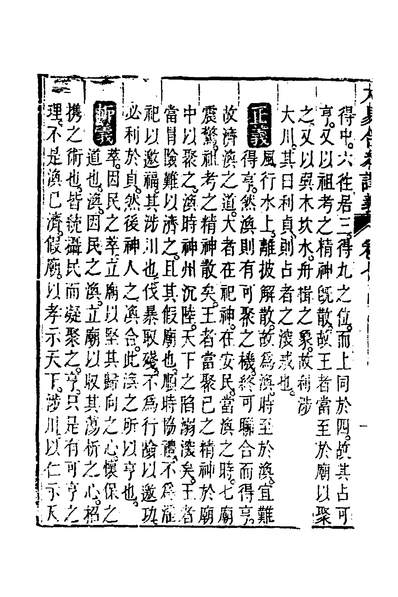 大易合參講義 卷七
得中六徃居三得九之位而上同於四故其占可
亨又以祖考之精神既散故王者當至於廟以聚
之又以巽木坎水舟楫之象故利涉
大川其曰利貞則占者之深戒也
正義 風行水上離披解散故為渙時至於渙宜難
得亨然渙則有可聚之機終可聯合而得亨
故濟渙之道大者在祀神在安民當渙之時七廟
震驚祖考之精神散矣王者當聚已之精神於廟
中以聚之渙時神州沉陸天下之陷溺深矣王者
當冒險難以濟之且其假廟也順時協禮不為淫
祀以邀福其涉川也伐暴取殘不為行險以邀功
必利於貞然後神人之渙合此渙之所以亨也
析義 萃因民之萃立廟以堅其歸向之心懷保之
道也渙因民之渙立廟以収其蕩析之心招
携之術也皆統攝民而凝聚之亨只是有可亨之
理不是渙已濟假廟以孝示天下涉川以仁示天